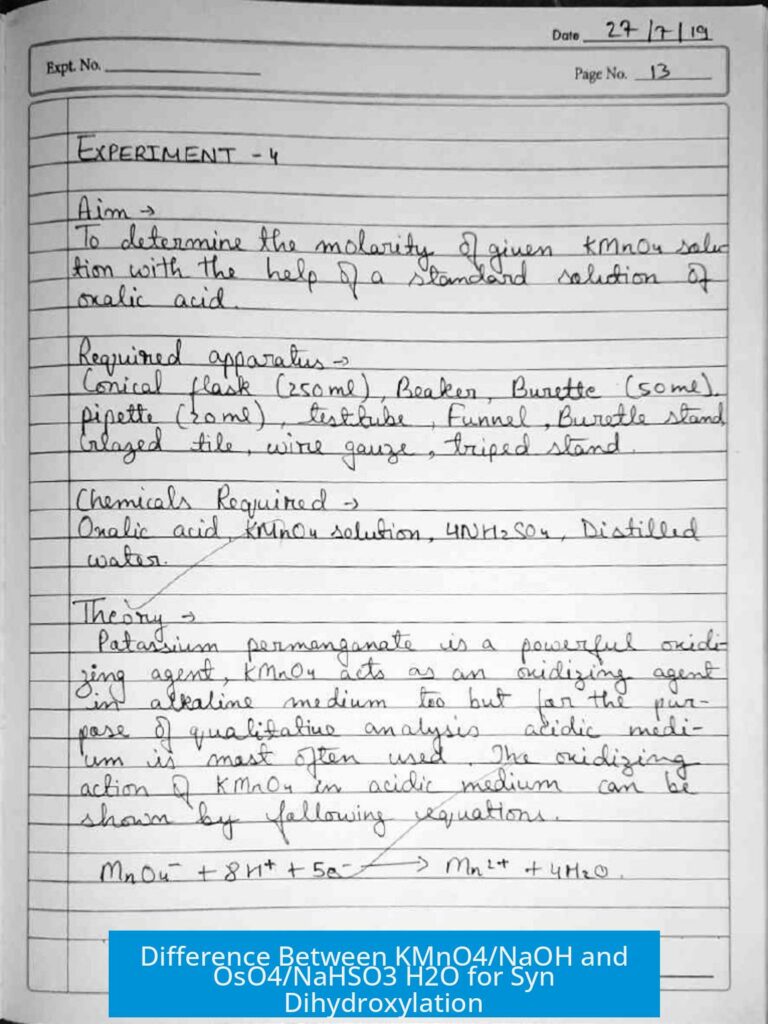 Date 27/7/19
Expt. No.
Page No. 13
EXPERIMENT - 4
Aim →
To determine the molarity of given KMnO4 solu
tion with the help of a standard solution of
oxalic acid.
Required apparatus →
Conical flask (250ml), Beaker, Burette (50ml).
pipette (20ml), testtube, Funnel, Burette stand
Glazed tile, wire gauze, triped stand.
Chemicals Required →
Oxalic acid, KMnO4 solution, 4NH2SO4, Distilled
water.
Theory →
Patassium permanganate is a powerful oxidi-
zing agent, KMnO4 acts as an oxidizing agent
in alkaline medium too but for the pur-
pose of qualitative analysis acidic medi-
um is most often used. The oxidizing
action of KMnO4 in acidic medium can be
shown by following equations.
MnO4⁻ + 8H⁺ + 5e⁻ → Mn²⁺ + 4H2O.
Difference Between KMnO4/NaOH and
OsO4/NaHSO3 H2O for Syn
Dihydroxylation